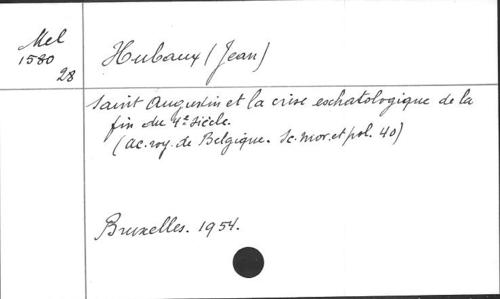 Mel
1580
28
Hubaux (Jean)
Saint Augustin et la crise eschatologique de la
fin du 4e siècle.
(Ac. roy. de Belgique. Sc. mor. et pol. 40)
Bruxelles. 1954.